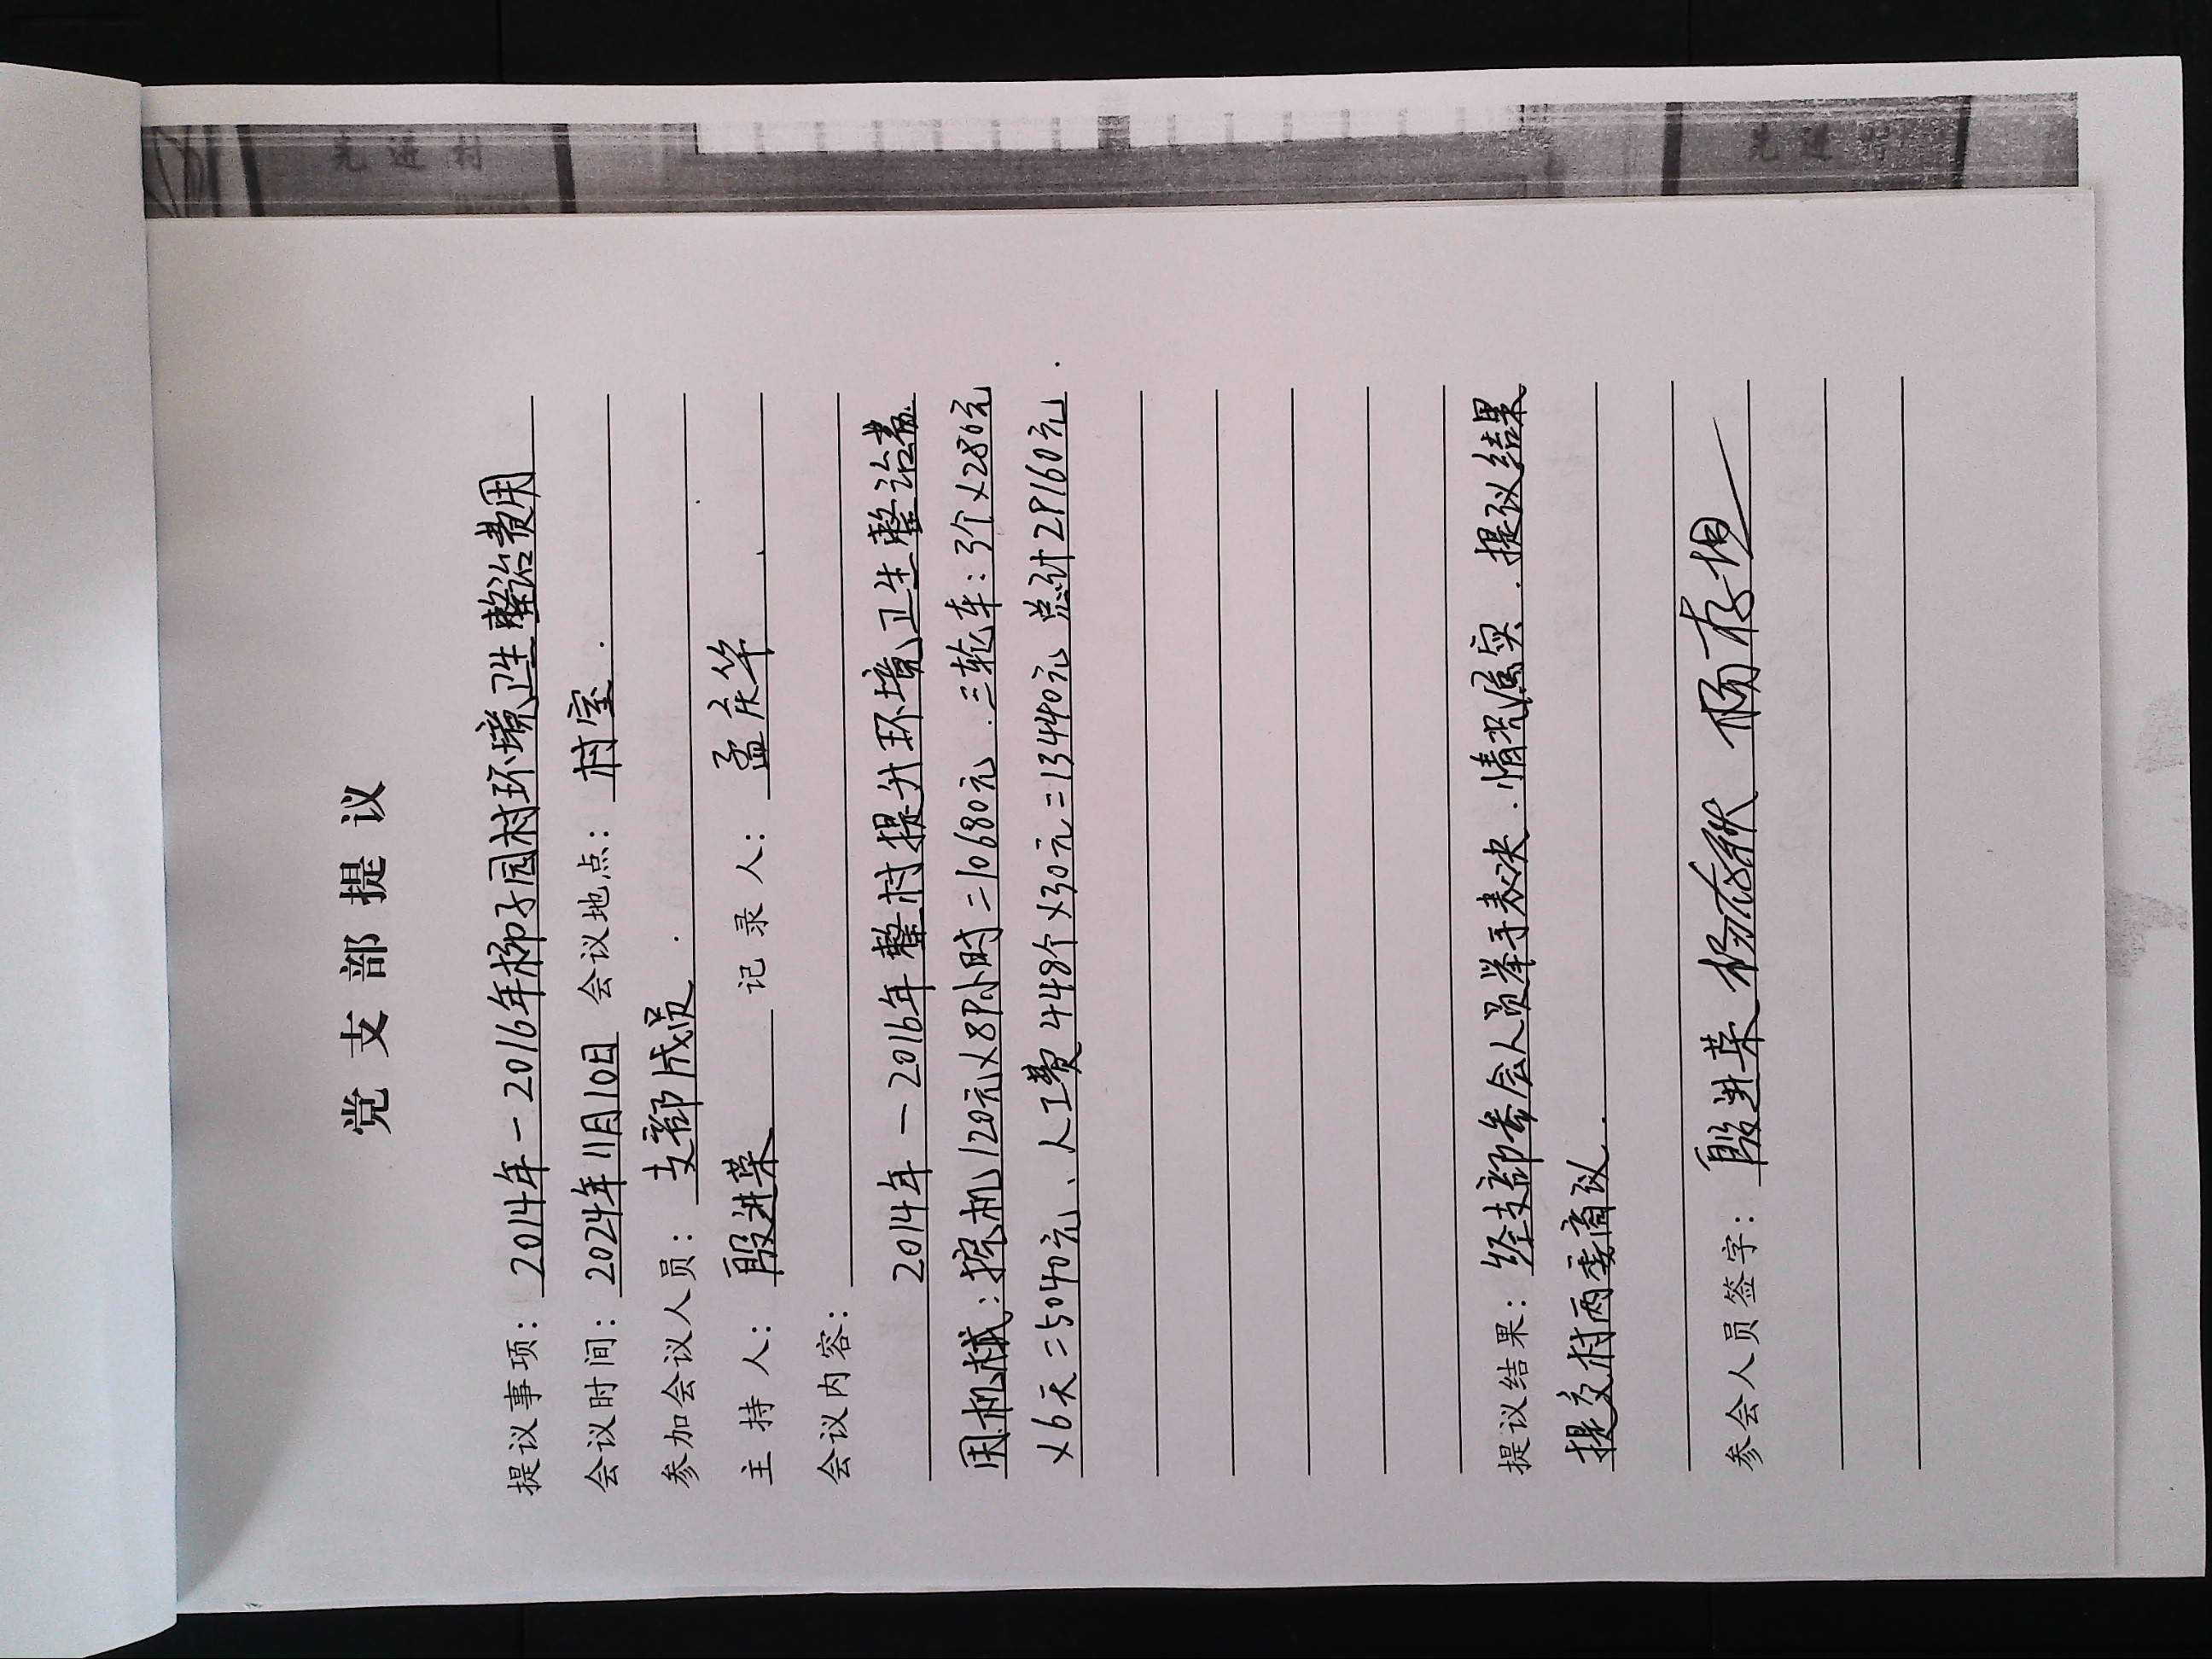 先进村
先进
党支部提议
提议事项：2014年－2016年柳子园村环境卫生整治费用
会议时间：2024年11月10日 会议地点：村室.
参加会议人员：支部成员.
主持人：殷进菜 记录人：孟庆华
会议内容：
2014年－2016年整村提升环境卫生整治
用机械：挖机120元×89小时=10680元.三轮车：3个×280元
×6天=5040元、人工费448个×30元=13440元 总计29160元.
提议结果：经支部参会人员举手表决.情况属实.提议结果
提交村两委商议.
参会人员签字：殷进菜